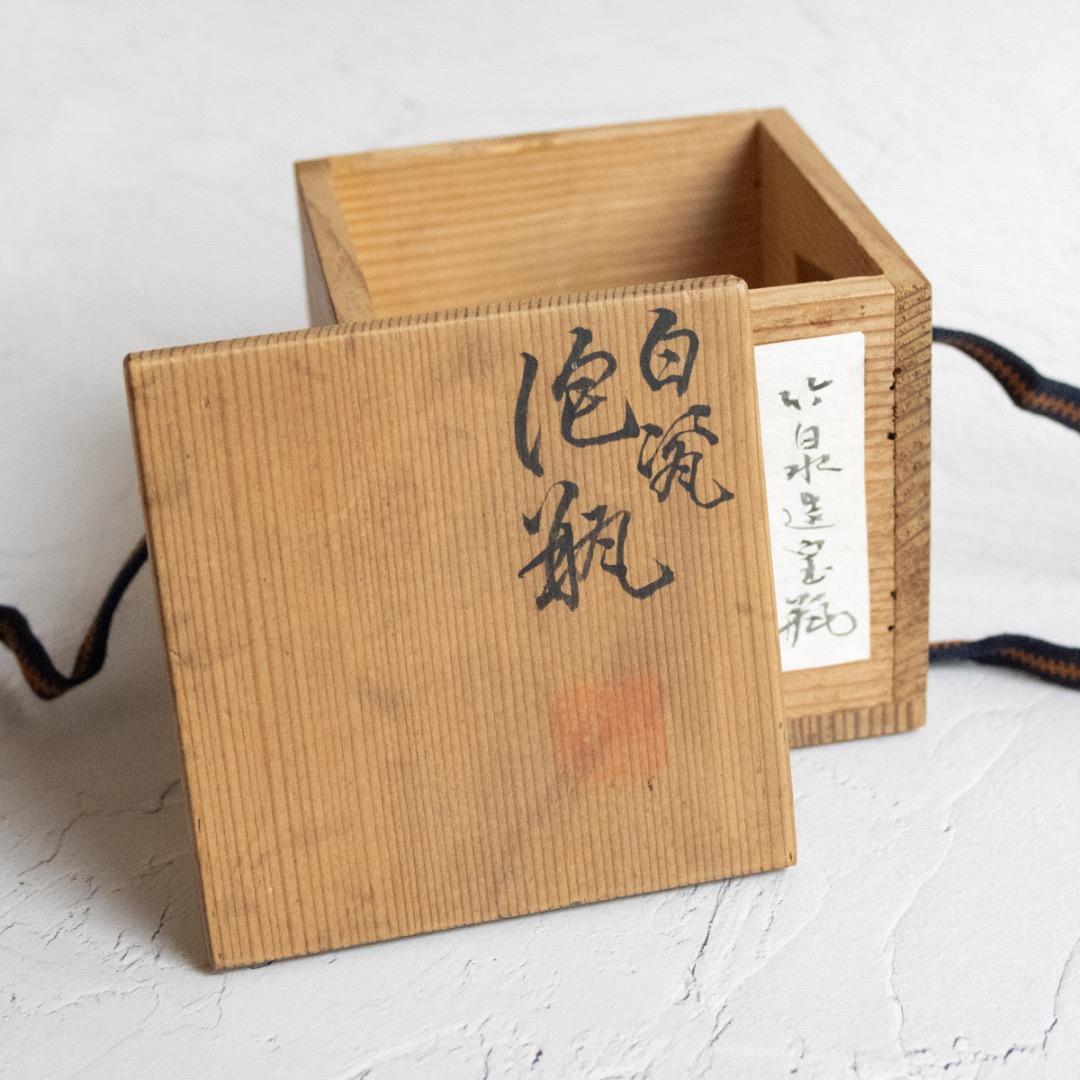 白瓷
泡瓶
竹泉造宝瓶